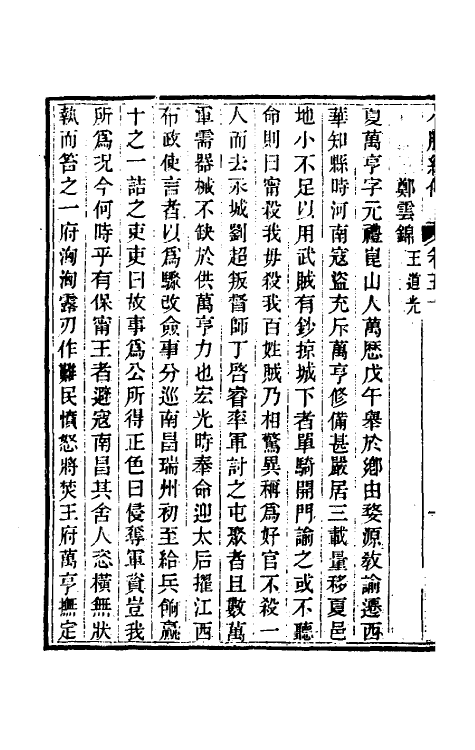 小腆紀傳　卷五十　一
鄭雲錦　王道光
夏萬亨字元禮崑山人萬歷戊午舉於鄉由婺源敎諭遷西
華知縣時河南寇盜充斥萬亨修備甚嚴居三載量移夏邑
地小不足以用武賊有鈔掠城下者單騎開門諭之或不聽
命則曰甯殺我毋殺我百姓賊乃相驚異稱爲好官不殺一
人而去永城劉超叛督師丁啓睿率軍討之屯聚者且數萬
軍需器械不缺於供萬亨力也宏光時奉命迎太后擢江西
布政使言者以爲驟改僉事分巡南昌瑞州初至給兵餉贏
十之一詰之吏吏曰故事爲公所得正色曰侵奪軍資豈我
所爲況今何時乎有保甯王者避寇南昌其舍人恣橫無狀
執而笞之一府洶洶露刃作難民憤怒將焚王府萬亨撫定